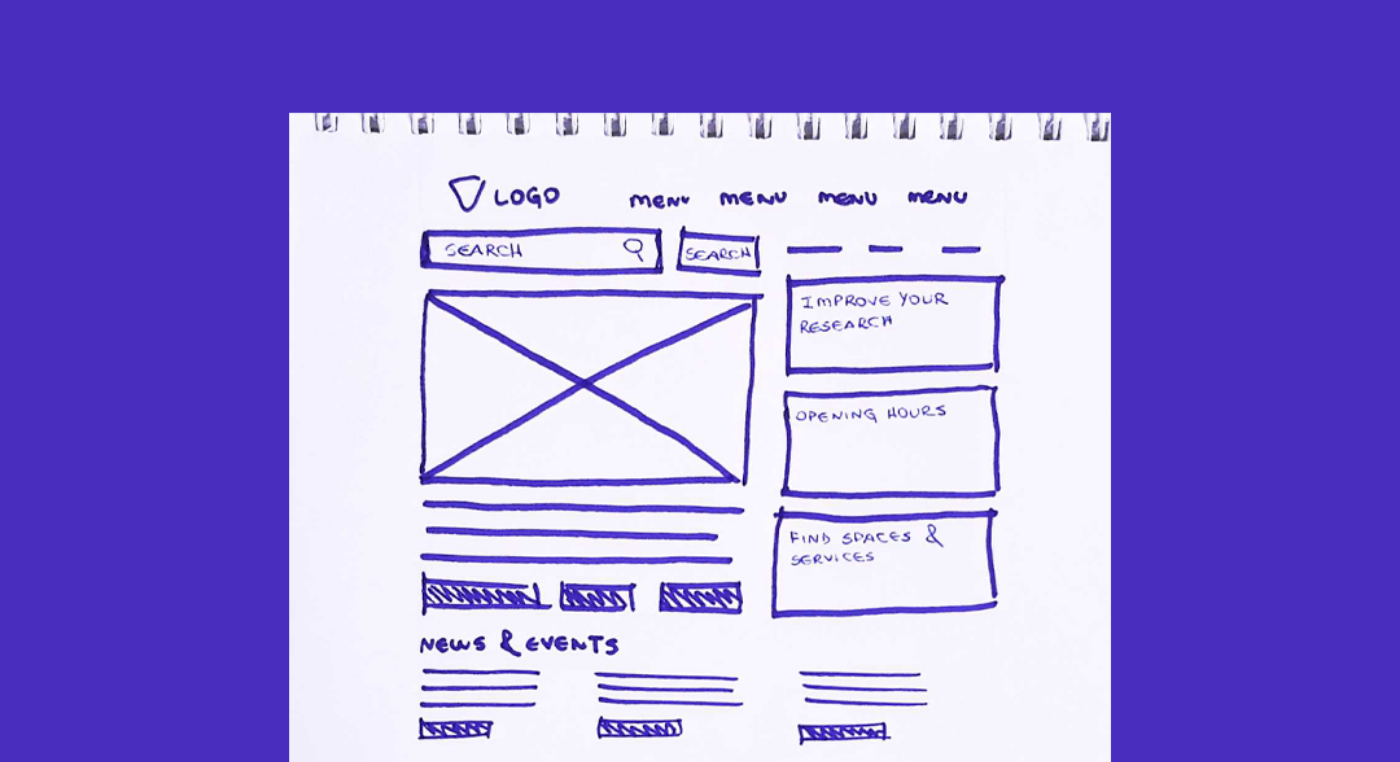 LOGO MENU MENU MENU MENU
SEARCH SEARCH
IMPROVE YOUR
RESEARCH
OPENING HOURS
FIND SPACES &
SERVICES
NEWS & EVENTS